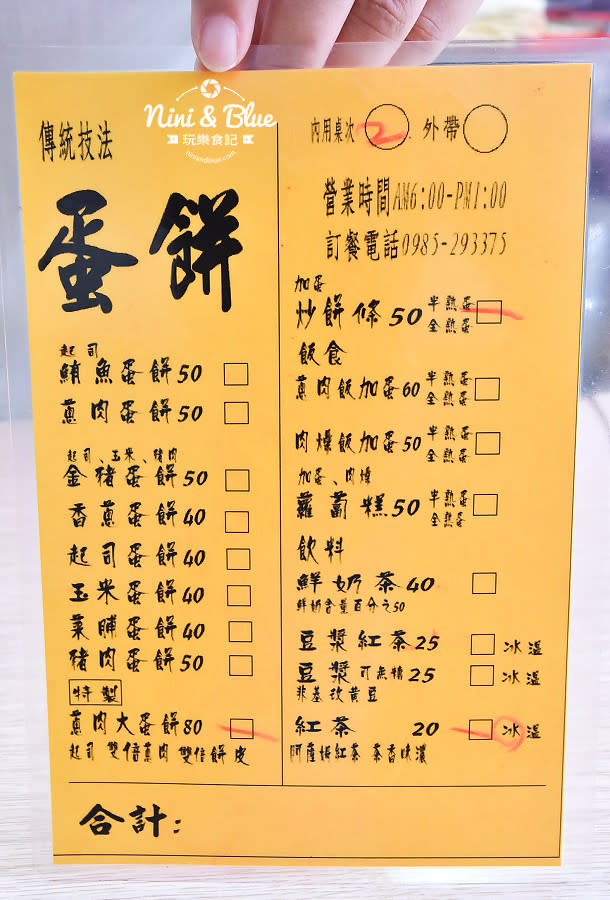 Nini & Blue
玩樂食記
niniandblue.com
傳統技法
蛋餅
起司
鮪魚蛋餅50
蔥肉蛋餅50
起司、玉米、豬肉
金豬蛋餅50
香蔥蛋餅40
起司蛋餅40
玉米蛋餅40
菜脯蛋餅40
豬肉蛋餅50
特製
蔥肉大蛋餅80
起司 雙倍蔥肉 雙倍餅皮
內用桌次 2 外帶
營業時間AM6:00-PM1:00
訂餐電話0985-293375
加蛋
炒餅條50 半熟蛋 全熟蛋
飯食
蔥肉飯加蛋60 半熟蛋 全熟蛋
肉燥飯加蛋50 半熟蛋 全熟蛋
加蛋、肉燥
蘿蔔糕50 半熟蛋 全熟蛋
飲料
鮮奶茶40
鮮奶含量百分之50
豆漿紅茶25 冰 溫
豆漿 可無糖 25 冰 溫
非基改黃豆
紅茶 20 冰 溫
阿薩姆紅茶 茶香味濃
合計: